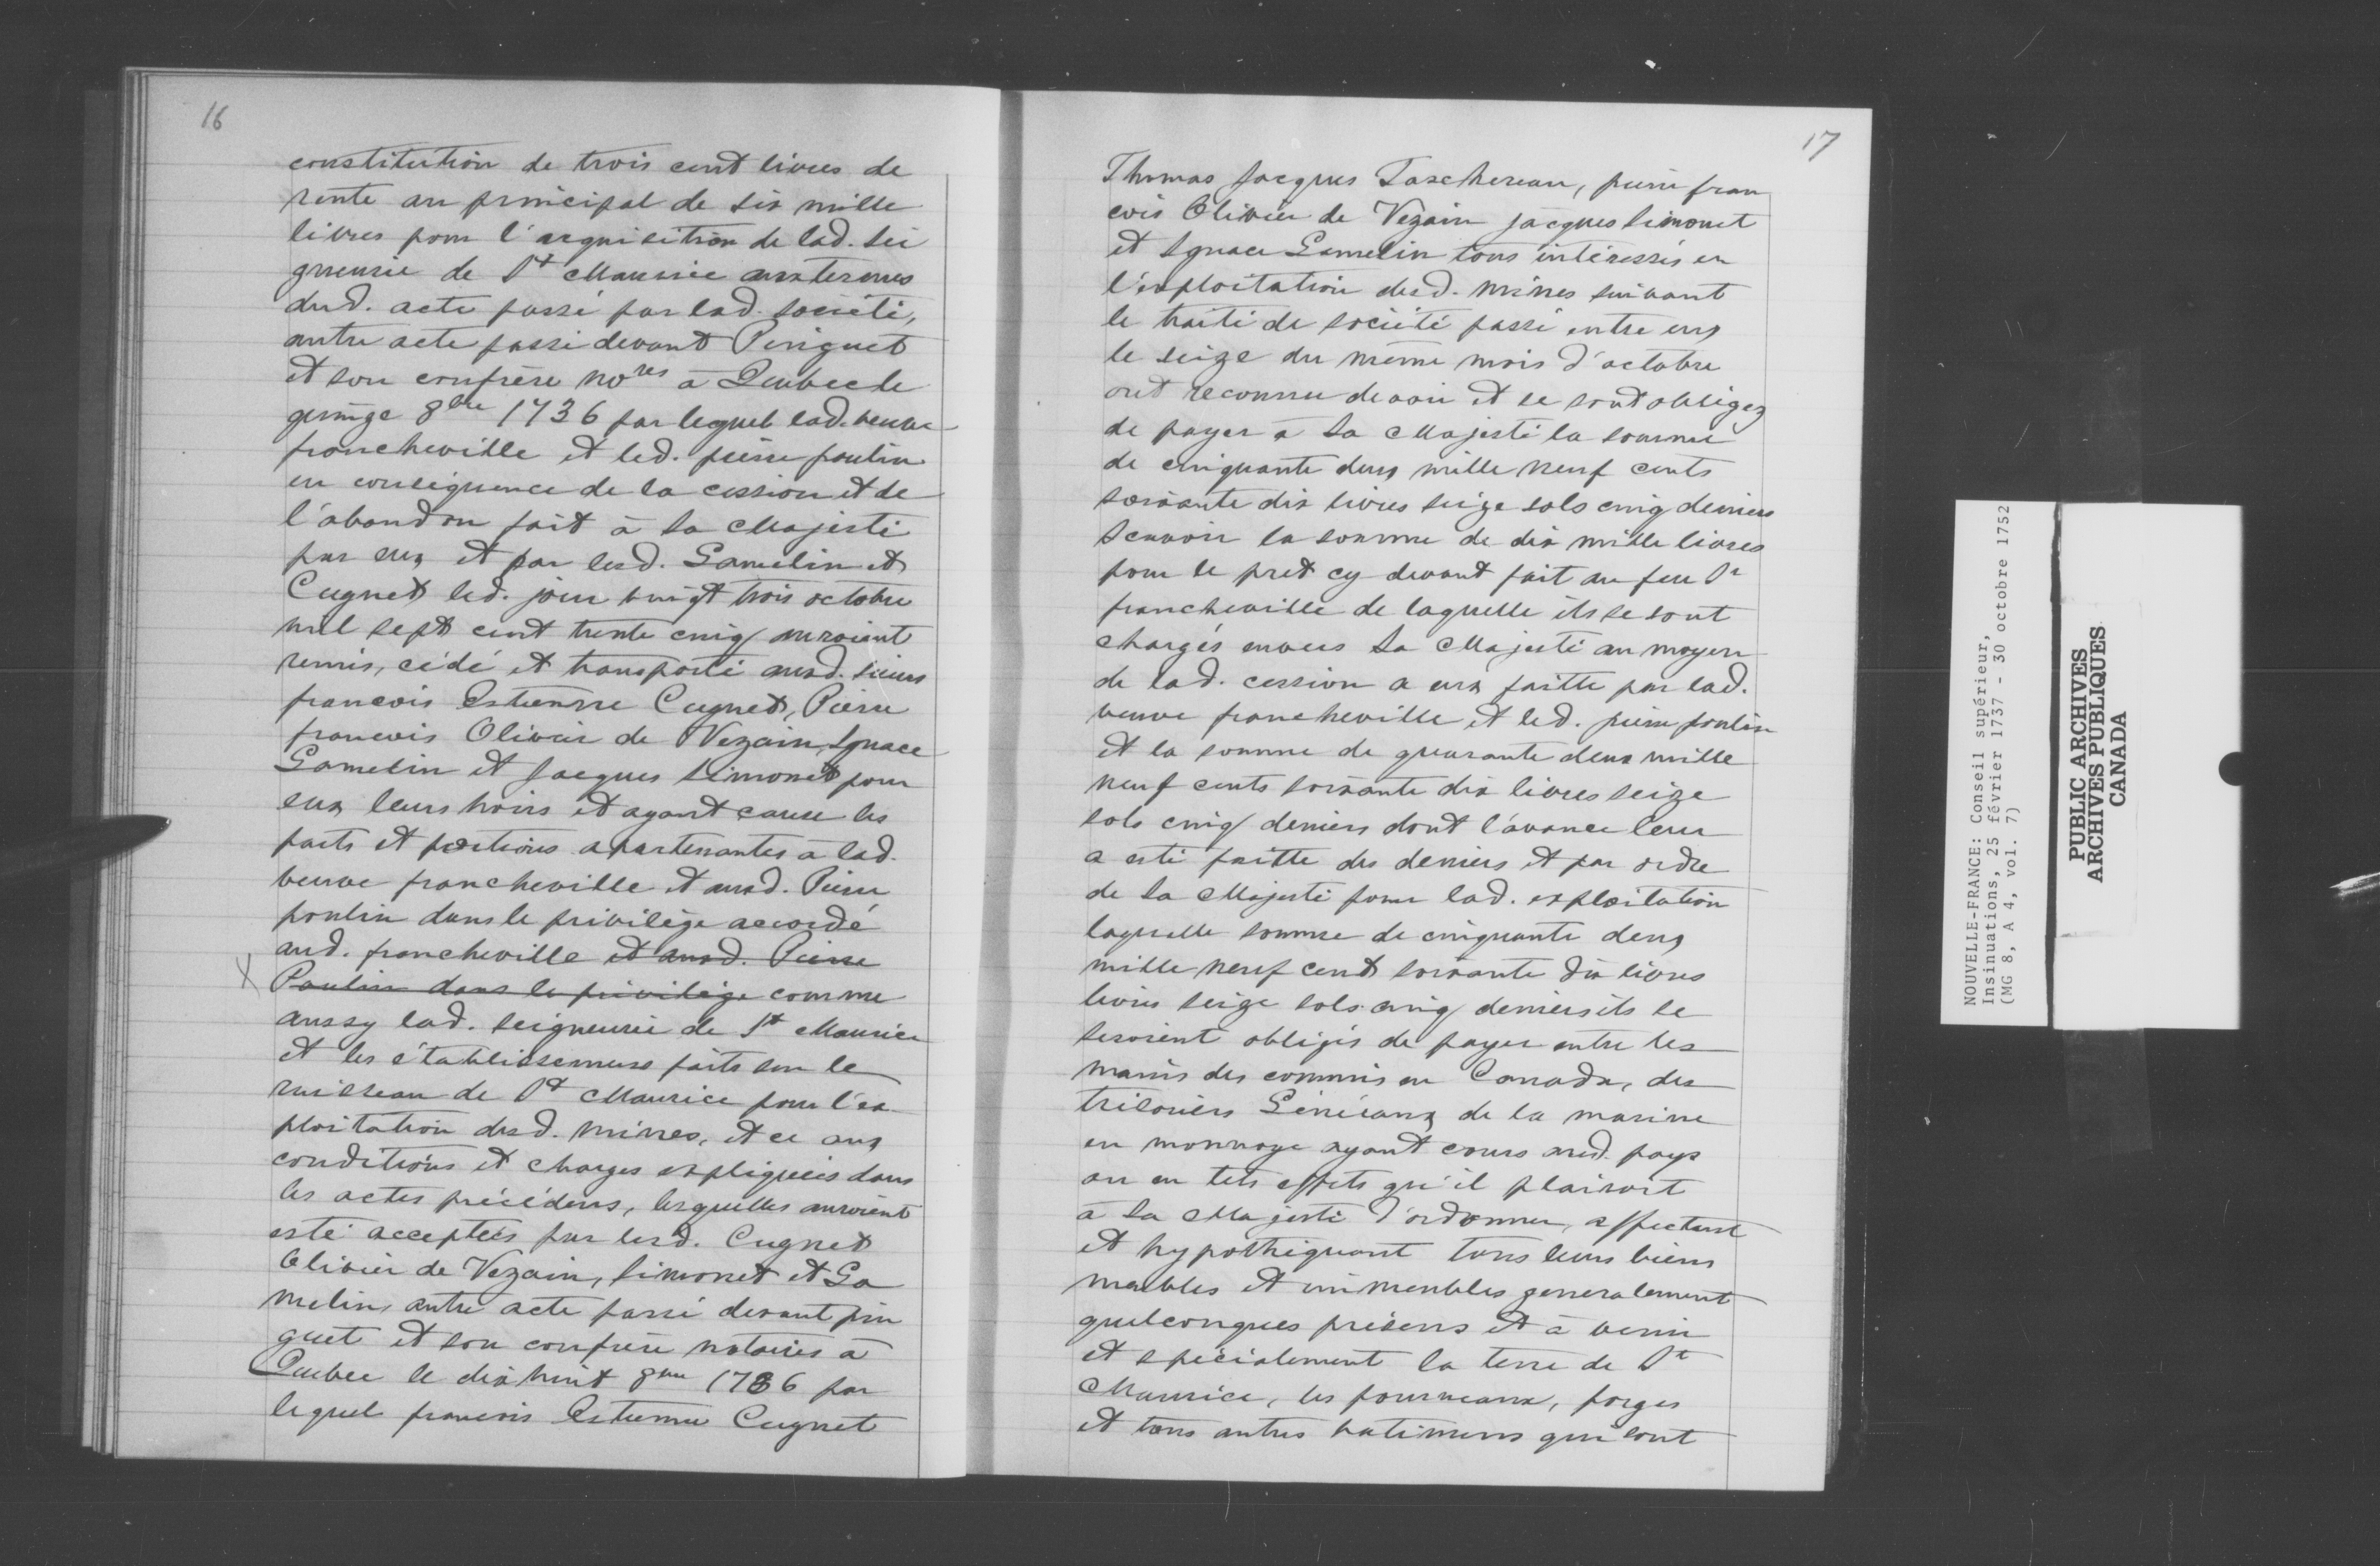 16
constitution de trois cent livres de
rente au principal de six mille
livres pour l'arquisition de lad. sei
gneurie de St Maurice aux termes
dud. acte passé par lad. société,
autre acte passé devant Pinguet
et son confrère nores à Quebec le
quinze 8bre 1736 par lequel lad. veuve
francheville et led. pierre poulin
en consequence de la cession et de
l'abandon fait à Sa Majesté
par eux et par lesd. Gamelin et
Cugnet led. jour vingt trois octobre
mil sept cent trente cinq auroient
remis, cédé et transporté ausd. sieurs
francois Estienne Cugnet, Pierre
francois Olivier de Vezain, Ignace
Gamelin et Jacques Simonet pour
eux leurs hoirs et ayant cause les
parts et portions apartenantes a lad.
veuve francheville et aud. Pierre
poulin dans le privilège accordé
aud. francheville et aud. Pierre
X Poulin dans le privilège comme
aussy lad. seigneurie de St Maurice
et les établissemens faits sur le
ruisseau de St Maurice pour l'ex
ploitation desd. mines, et ce aux
conditions et charges expliquées dans
les actes précédens, lesquelles auroient
esté acceptées par lesd. Cugnet
Olivier de Vezain, Simonet et Ga
melin, autre acte passé devant pin
guet et son confrère notaires à
Quebec le dix huit 8bre 1736 par
lequel francois Estienne Cugnet
17
Thomas Jacques Taschereau, pierre fran
cois Olivier de Vezain jacques Simonet
et Ignace Gamelin tous intéressés en
l'exploitation desd. mines suivant
le traité de société passé entre eux
le seize du même mois d'octobre
ont reconnu devoir et se sont obligez
de payer a Sa Majesté la somme
de cinquante deux mille neuf cents
soixante dix livres seize sols cinq deniers
Scavoir la somme de dix mille livres
pour le pret cy devant fait au feu Sr
francheville de laquelle ils se sont
chargés envers Sa Majesté au moyen
de lad. cession a eux faitte par lad.
veuve francheville et led. pierre poulin
et la somme de quarante deux mille
neuf cents soixante dix livres seize
sols cinq deniers dont l'avance leur
a esté faitte des deniers et par ordre
de Sa Majesté pour lad. exploitation
laquelle somme de cinquante deux
mille neuf cent soixante dix livres
livres seize sols cinq deniers ils se
seroient obligés de payer entre les
mains des commis en Canada, des
trésoriers Généraux de la marine
en monnoye ayant cours aud. pays
ou en tels effets qu'il plairoit
a Sa Majesté d'ordonner, affectant
et hypothéquant tous leurs biens
meubles et immeubles generalement
quelconques présens et à venir
et spécialement la terre de St
Maurice, les fourneaux, forges
et tous autres batimens qui sont
NOUVELLE-FRANCE: Conseil supérieur,
Insinuations, 25 février 1737 - 30 octobre 1752
(MG 8, A 4, vol. 7)
PUBLIC ARCHIVES
ARCHIVES PUBLIQUES
CANADA